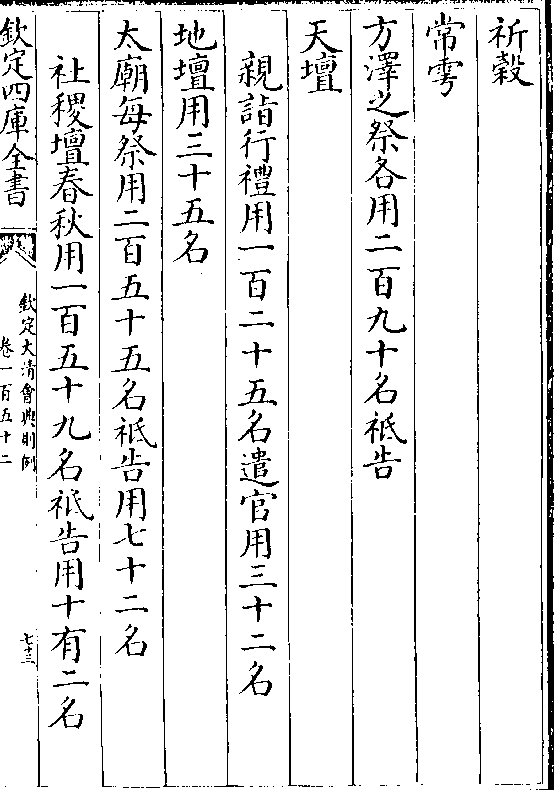 祈穀
常雩
方澤之祭各用二百九十名祗告
天壇
親詣行禮用一百二十五名遣官用三十二名
地壇用三十五名
太廟每祭用二百五十五名祗告用七十二名
社稷壇春秋用一百五十九名祗告用十有二名
欽定四庫全書
欽定大清會典則例
卷一百五十二
七十三